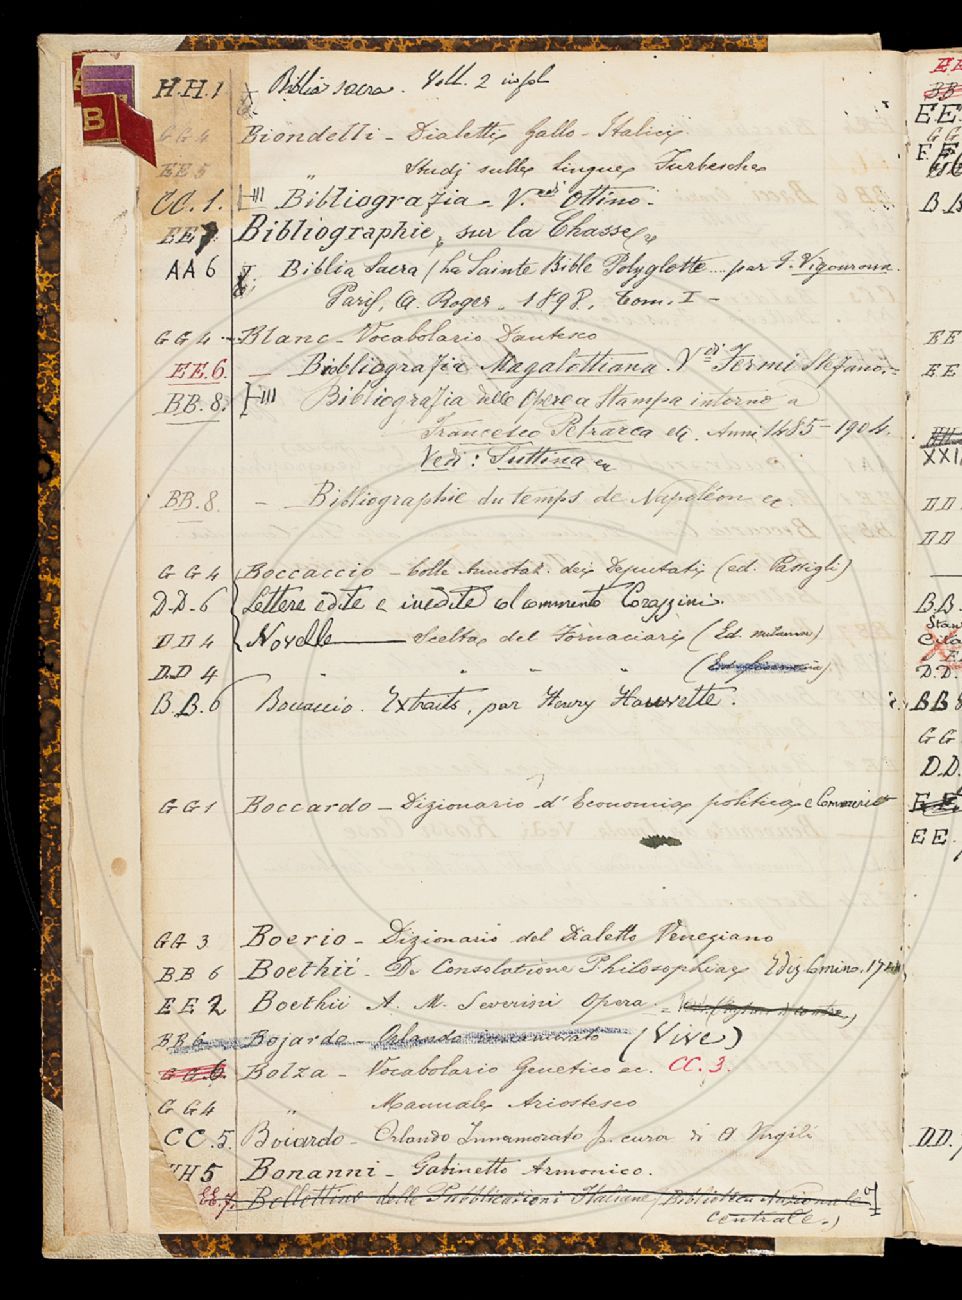 H.H.1 Biblia sacra. Voll. 2 in fol
GG4 Biondelli - Dialetti Gallo-Italici
EE5 " Studj sulle Lingue Furbesche
CC.1. Bibliografia - V. Ottino.
EE Bibliographie sur la Chasse
AA6 Biblia Sacra / La Sainte Bible Polyglotte par F. Vigouroux
Paris, A. Roger, 1898. tom. I -
GG4 - Blanc - Vocabolario Dantesco
EE.6. - Bibliografia Magalottiana. V. Fermi Stefano. -
BB.8. Bibliografia delle Opere a Stampa intorno a
Francesco Petrarca Anni 1485-1904.
Vedi: Suttina
BB.8. - Bibliographie du temps de Napoléon ec.
GG4 Boccaccio - Colle Annotaz. dei Deputati (ed. Passigli)
D.D.6 Lettere edite e inedite col commento Corazzini.
DD4 Novelle - Scelta del Fornaciari (Ed. milanese)
DD4 " " "
B.B.6 Boccaccio. Extraits, par Henry Hauvette.
GG1 Boccardo - Dizionario d'Economia politica e Commercio
GG3 Boerio - Dizionario del Dialetto Veneziano
BB6 Boethii - De Consolatione Philosophiae Ediz Comino.
EE2 Boethii A. M. Severini Opera.
BB6 Bojardo - Orlando innamorato (Vive)
GG.6. Bolza - Vocabolario Genetico ec. CC.3.
GG4 " Manuale Ariostesco
CC.5. Boiardo - Orlando Innamorato p. cura di A Virgili
HH5 Bonanni - Gabinetto Armonico.
EE.7. Bollettino delle Pubblicazioni Italiane (Biblioteca Nazionale
centrale.)
B
EE
BB
EE
GG
B.B
EE
EE
XXII
DD
DD
B.B.
D.D.
BB8
GG
D.D.
E.E.
EE.
DD.